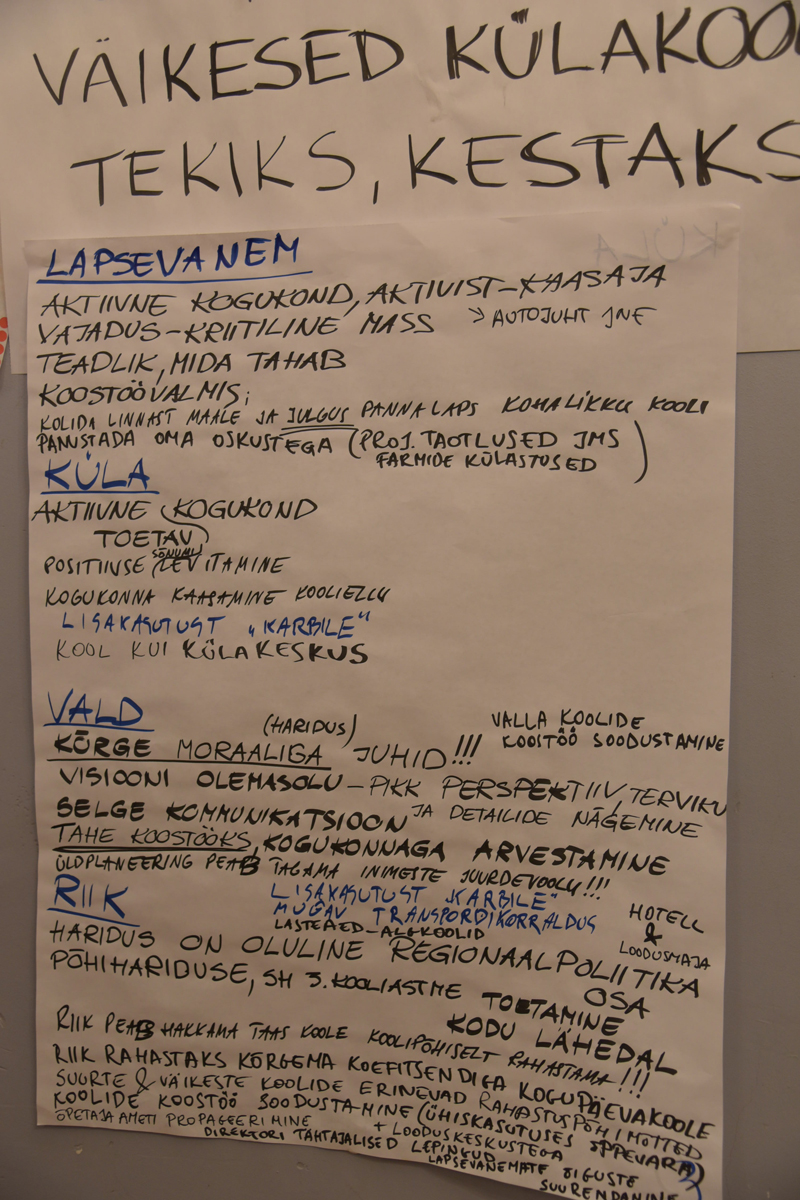 VÄIKESED KÜLAKOO
TEKIKS, KESTAKS
KÜLA
LAPSEVANEM
AKTIIVNE KOGUKOND, AKTIVIST-KAASAJA
VAJADUS-KRIITILINE MASS > AUTOJUHT JNE
TEADLIK, MIDA TAHAB
KOOSTÖÖVALMIS;
KOLIDA LINNAST MAALE JA JULGUS PANNA LAPS KOHALIKKU KOOLI
PANUSTADA OMA OSKUSTEGA (PROJ. TAOTLUSED JMS
FARMIDE KÜLASTUSED)
KÜLA
AKTIIVNE KOGUKOND
TOETAV
POSITIIVSE SÕNUMI LEVITAMINE
KOGUKONNA KAASAMINE KOOLIELLU
LISAKASUTUST "KARBILE"
KOOL KUI KÜLAKESKUS
VALD
(HARIDUS)
KÕRGE MORAALIGA JUHID!!!
VALLA KOOLIDE
KOOSTÖÖ SOODUSTAMINE
VISIOONI OLEMASOLU - PIKK PERSPEKTIIV, TERVIKU
JA DETAILIDE NÄGEMINE
SELGE KOMMUNIKATSIOON
TAHE KOOSTÖÖKS, KOGUKONNAGA ARVESTAMINE
ÜLDPLANEERING PEAB TAGAMA INIMESTE JUURDEVOOLU!!!
RIIK
LISAKASUTUST "KARBILE"
MUGAV TRANSPORDIKORRALDUS
HOTELL
&
LOODUSMAJA
LASTEAED-ALGKOOLID
HARIDUS ON OLULINE REGIONAALPOLIITIKA
OSA
PÕHIHARIDUSE, SH 3. KOOLIASTME TOETAMINE
KODU LÄHEDAL
RIIK PEAB HAKKAMA TAAS KOOLE KOOLIPÕHISELT RAHASTAMA!!!
RIIK RAHASTAKS KÕRGEMA KOEFITSENDIGA KOGUPÄEVAKOOLE
SUURTE & VÄIKESTE KOOLIDE ERINEVAD RAHASTUSPÕHIMÕTTED
KOOLIDE KOOSTÖÖ SOODUSTAMINE (ÜHISKASUTUSES ÕPPEVARA)
+ LOODUSKESKUSTEGA
ÕPETAJA AMETI PROPAGEERIMINE
DIREKTORI TÄHTAJALISED LEPINGUD
LAPSEVANEMATE ÕIGUSTE
SUURENDAMINE